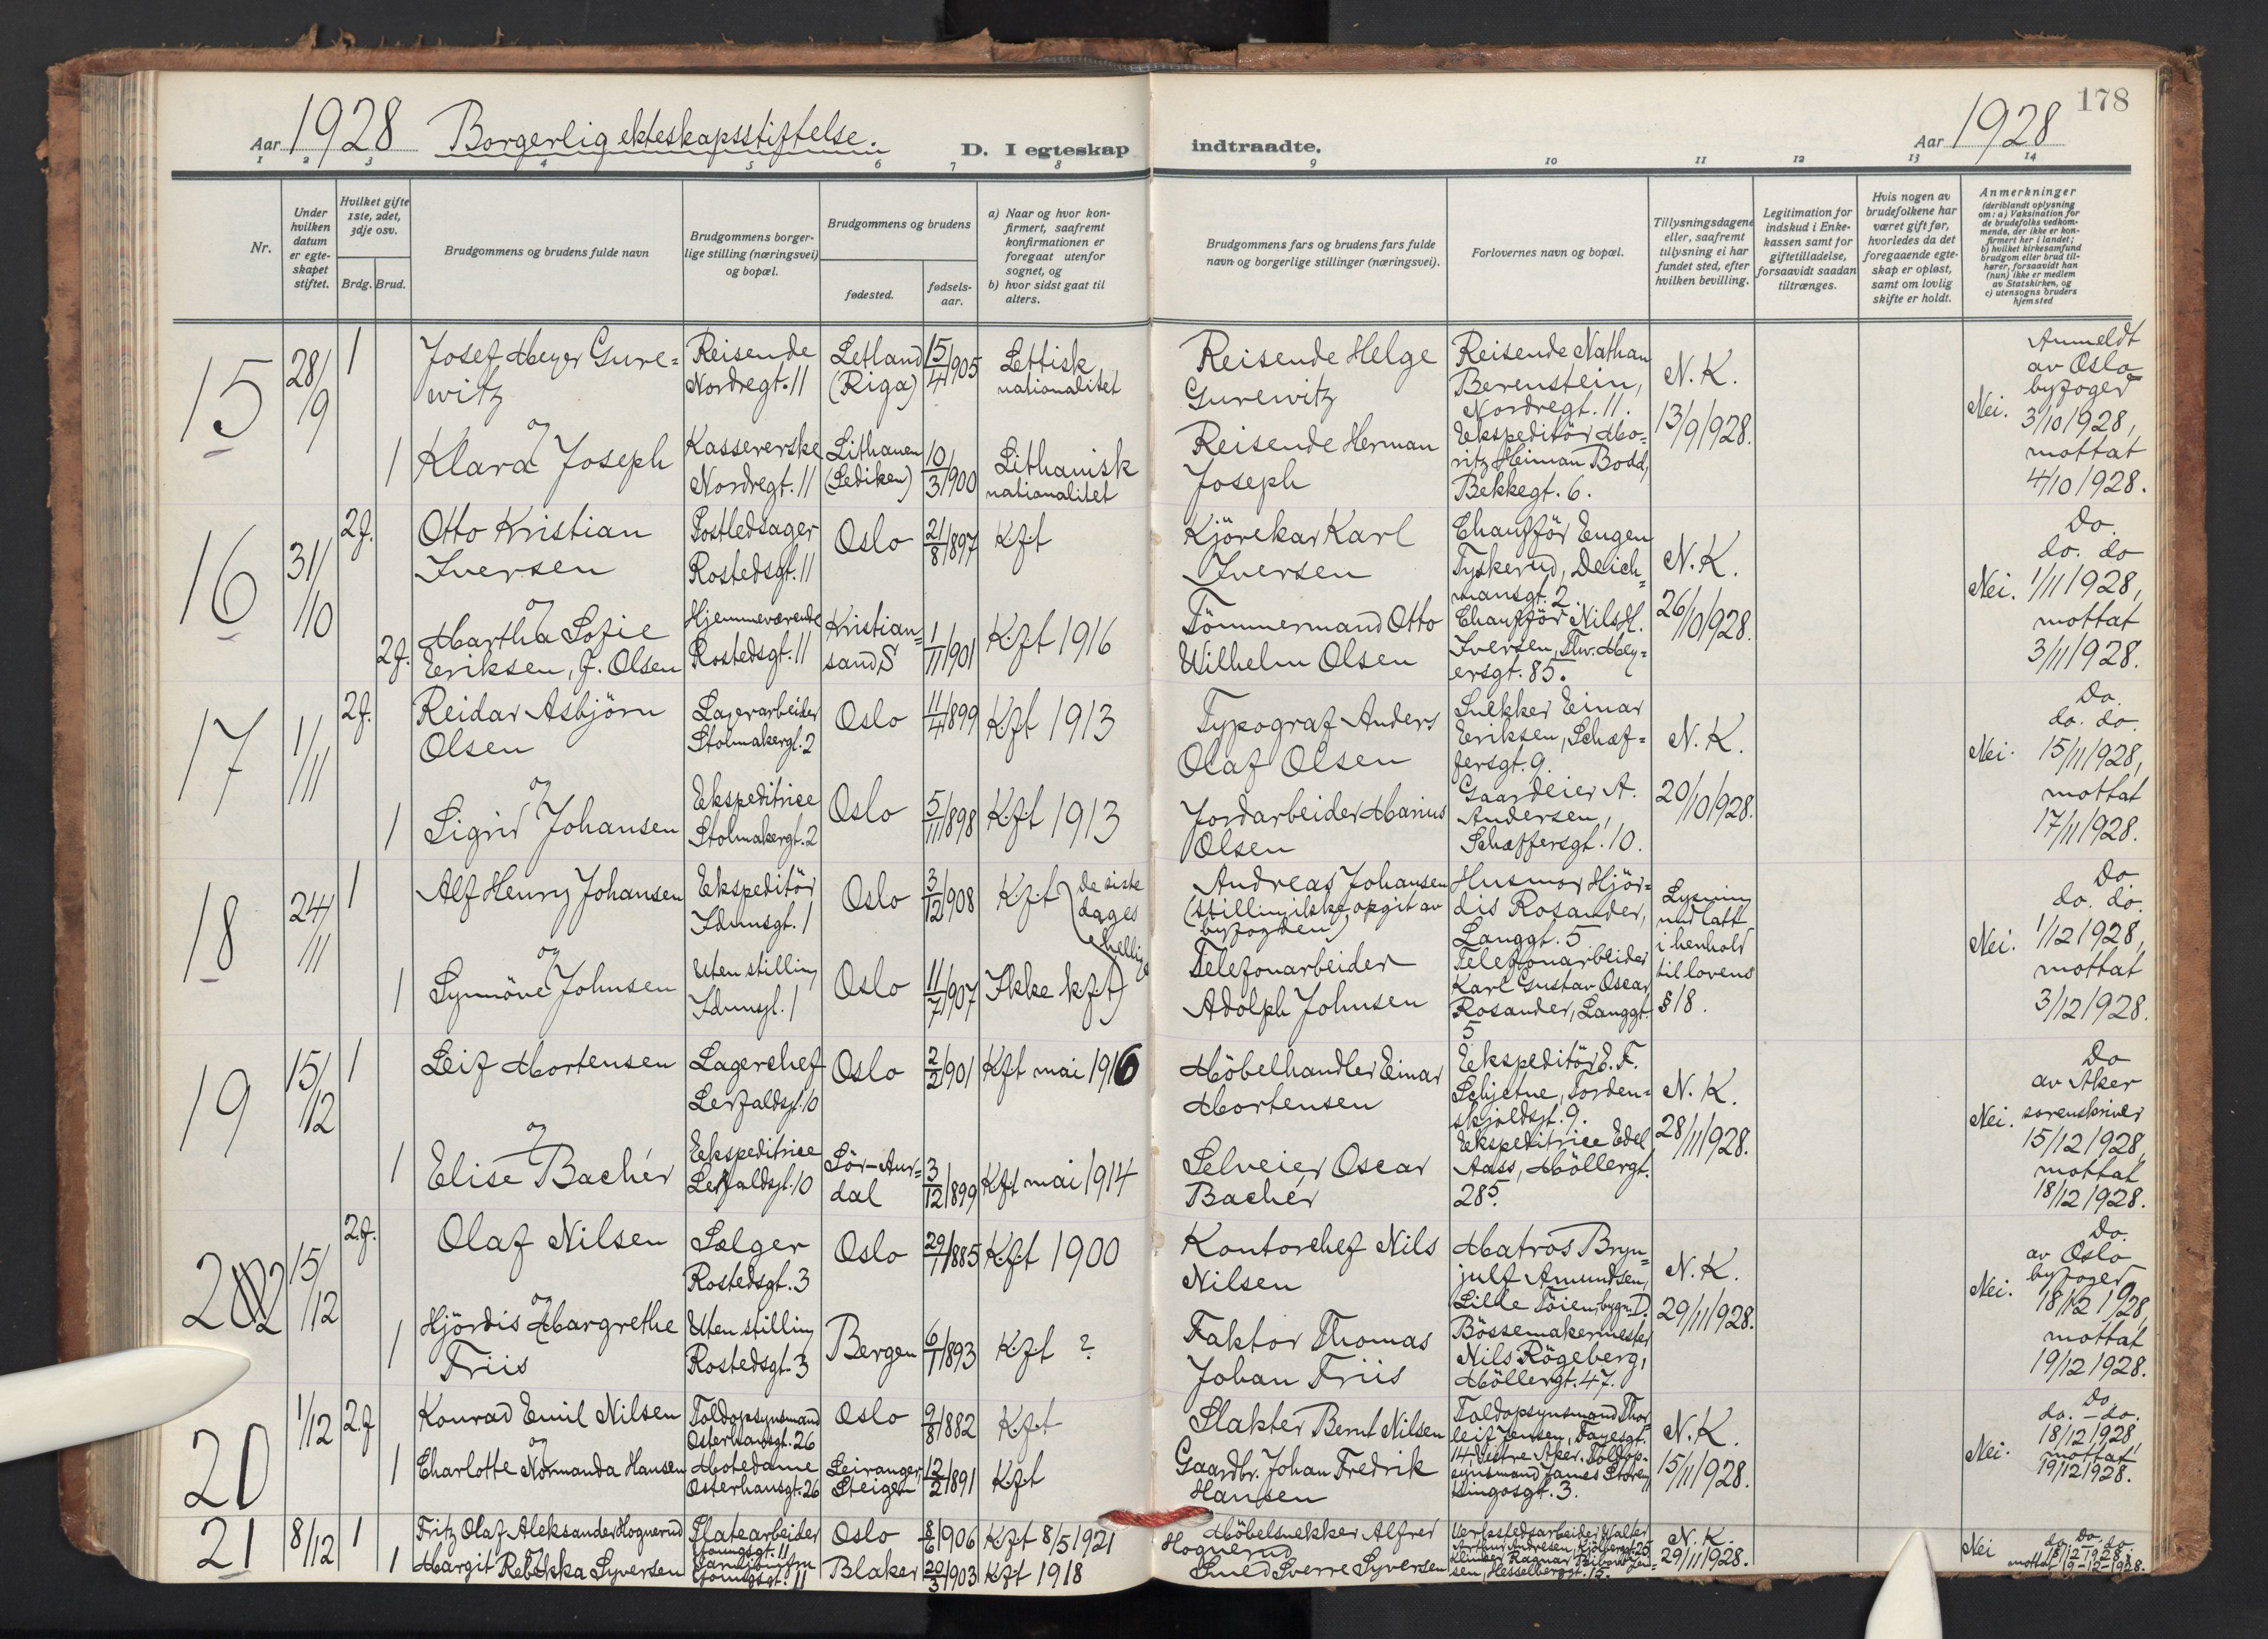 178
Aar 1928 Borgerlig ekteskapsstiftelse. D. I egteskap indtraadte. Aar 1928
1 2 3 4 5 6 7 8 9 10 11 12 13 14
Nr.
Under hvilken datum er egteskapet stiftet.
Hvilket gifte 1ste, 2det, 3dje osv.
Brdg. Brud.
Brudgommens og brudens fulde navn
Brudgommens borgerlige stilling (næringsvei) og bopæl.
Brudgommens og brudens
fødested.
fødselsaar.
a) Naar og hvor konfirmert, saafremt konfirmationen er foregaat utenfor sognet, og
b) hvor sidst gaat til alters.
Brudgommens fars og brudens fars fulde navn og borgerlige stillinger (næringsvei).
Forlovernes navn og bopæl.
Tillysningsdagene eller, saafremt tillysning ei har fundet sted, efter hvilken bevilling.
Legitimation for indskud i Enkekassen samt for giftetilladelse, forsaavidt saadan tiltrænges.
Hvis nogen av brudefolkene har været gift før, hvorledes da det foregaaende egteskap er opløst, samt om lovlig skifte er holdt.
Anmerkninger
(deriblandt oplysning om: a) Vaksination for de brudefolks vedkommende, der ikke er konfirmert her i landet; b) hvilket kirkesamfund brudgom eller brud tilhører, forsaavidt han (hun) ikke er medlem av Statskirken, og c) utensogns bruders hjemsted
15
28/9
1
Josef Meyer Gure=
witz
og
1
Klara Joseph
Reisende
Nordregt. 11
Kassererske
Nordregt. 11
Letland
(Riga)
Lithauen
(Sediken)
15/4 1905
10/3 1900
Lettisk
nationalitet
Lithauisk
nationalitet
Reisende Helge
Gurewitz
Reisende Herman
Joseph
Reisende Nathan
Berenstein,
Nordregt. 11.
Ekspeditör Mo=
ritz Heiman Bodd,
Bekkegt. 6.
N. K.
13/9 1928.
Nei.
Anmeldt
av Oslo
byfoged
3/10 1928,
mottat
4/10 1928.
16
31/10
2f.
Otto Kristian
Iversen
og
2f.
Martha Sofie
Eriksen, f. Olsen
Postledsager
Rostedsgt. 11
Hjemmeværende
Rostedsgt. 11
Oslo
Kristian=
sand S
21/8 1897
1/11 1901
Kft
Kft 1916
Kjörekar Karl
Iversen
Tömmermand Otto
Wilhelm Olsen
Chaufför Eugen
Tyskerud, Deich=
mansgt. 2.
Chaufför Nils H.
Iversen, Thv. Mey=
ersgt. 85.
N. K.
26/10 1928.
Nei.
Do.
do. do
1/11 1928,
mottat
3/11 1928.
17
1/11
2f.
Reidar Asbjörn
Olsen
og
1
Sigrid Johansen
Lagerarbeider
Stolmakergt. 2
Ekspeditrice
Stolmakergt. 2
Oslo
Oslo
11/4 1899
5/11 1898
Kft 1913
Kft 1913
Typograf Anders
Olaf Olsen
Jordarbeider Marius
Olsen
Snekker Einar
Eriksen, Schæf=
fersgt. 9.
Gaardeier A.
Andersen,
Schæffersgt. 10.
N. K.
20/10 1928.
Nei.
Do.
do. do.
15/11 1928,
mottat
17/11 1928.
18
24/11
1
Alf Henry Johansen
og
1
Synnöve Johnsen
Ekspeditör
Idunsgt. 1
Uten stilling
Idunsgt. 1
Oslo
Oslo
3/12 1908
11/7 1907
Kft
Ikke kft
de siste
dages
hellige
Andreas Johansen
(stilling ikke opgit av
byfogden)
Telefonarbeider
Adolph Johnsen
Husmor Hjör=
dis Rosander,
Langgt. 5
Telefonarbeider
Karl Gustav Oscar
Rosander, Langgt.
5
Lysning
undlatt
i henhold
til lovens
§ 18.
Nei.
Do
do. do.
1/12 1928,
mottat
3/12 1928.
19
15/12
1
Leif Mortensen
og
1
Elise Bachér
Lagerchef
Lerfaldsgt. 10
Ekspeditrice
Lerfaldsgt. 10
Oslo
Sör-Aur=
dal
2/2 1901
3/12 1899
Kft mai 1916
Kft mai 1914
Möbelhandler Einar
Mortensen
Selveier Oscar
Bachér
Ekspeditör E. F.
Schjetne, Torden=
skjoldsgt. 9.
Ekspeditrice Edel
Aass, Möllergt.
28.
N. K.
28/11 1928.
Nei.
Do
av Aker
sorenskriver
15/12 1928,
mottat
18/12 1928.
22
15/12
2.f.
Olaf Nilsen
og
1
Hjördis Margrethe
Friis
Sælger
Rostedsgt. 3
Uten stilling
Rostedsgt. 3
Oslo
Bergen
29/1 1885
6/1 1893
Kft 1900
Kft ?
Kontorchef Nils
Nilsen
Faktor Thomas
Johan Friis
Matros Bryn=
julf Amundsen,
Lille Töien, bygn. D.
Bössemakermester
Nils Rögeberg,
Möllergt. 47.
N. K.
29/11 1928.
Nei.
Do.
av Oslo
byfoged
18/12 1928,
mottat
19/12 1928.
20
1/12
2.f
Konrad Emil Nilsen
og
1
Charlotte Normanda Hansen
Toldopsynsmand
Osterhausgt. 26
Motedame
Osterhausgt. 26
Oslo
Leiranger
Steigen
9/8 1882
12/2 1891
Kft
Kft
Slakter Bernt Nilsen
Gaardbr. Johan Fredrik
Hansen
Toldopsynsmand Thor
leif Jensen, Fagesgt.
14, Vestre Aker. Toldop=
synsmand James
3.
N. K.
15/11 1928.
Nei.
Do.
do. - do.
18/12 1928,
mottat
19/12 1928.
21
8/12
1
Fritz Olaf Aleksander Hognerud
og
1
Margit Rebekka Syversen
Platearbeider
11
11
Oslo
Blaker
1906
20/3 1903
Kft 8/5 1921
Kft 1918
Möbelsnekker Alfred
Hognerud
Smed Sverre Syversen
Verkstedsarbeider Walter
Arthur Andresen,
Ragnar
sen, Hesselbergsgt. 15.
N. K.
29/11 1928.
Nei
Do.
do. do.
18/12 1928,
mottat 19-12-1928.